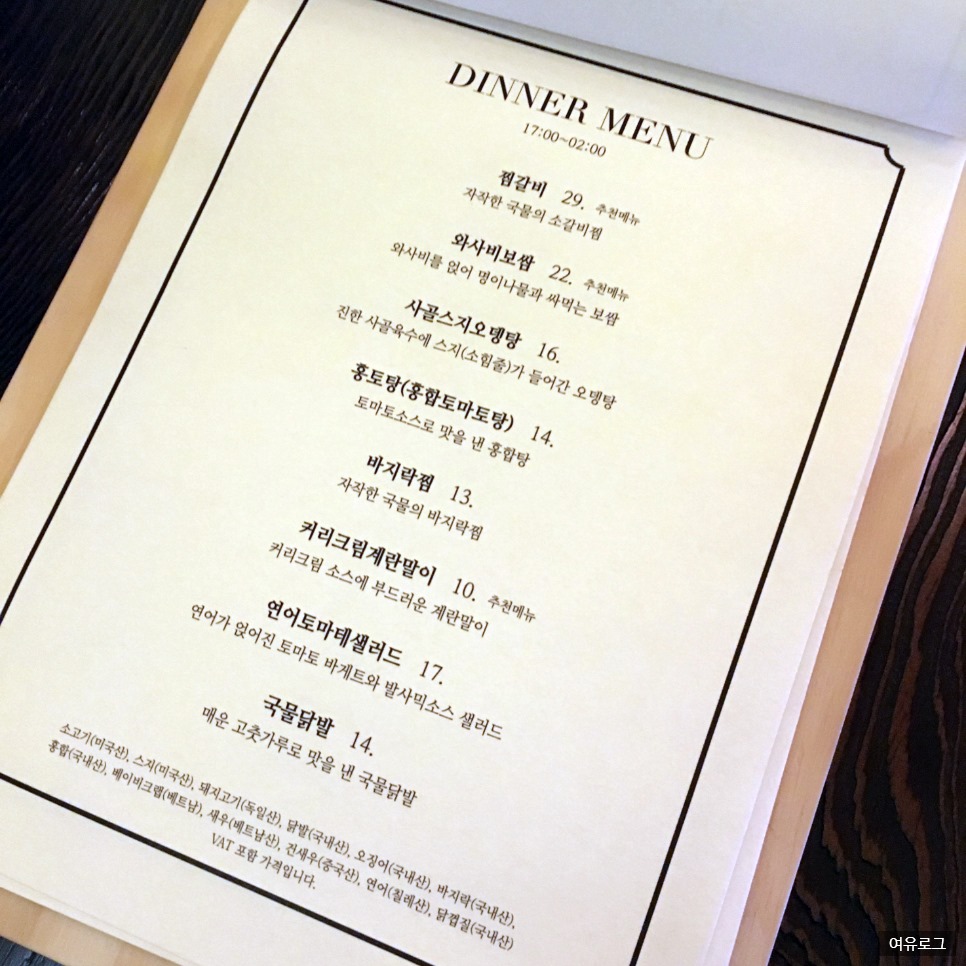 DINNER MENU
17:00~02:00
찜갈비 29. 추천메뉴
자작한 국물의 소갈비찜
와사비보쌈 22. 추천메뉴
와사비를 얹어 명이나물과 싸먹는 보쌈
사골스지오뎅탕 16.
진한 사골육수에 스지(소힘줄)가 들어간 오뎅탕
홍토탕(홍합토마토탕) 14.
토마토소스로 맛을 낸 홍합탕
바지락찜 13.
자작한 국물의 바지락찜
커리크림계란말이 10. 추천메뉴
커리크림 소스에 부드러운 계란말이
연어토마테샐러드 17.
연어가 얹어진 토마토 바게트와 발사믹소스 샐러드
국물닭발 14.
매운 고춧가루로 맛을 낸 국물닭발
소고기(미국산), 스지(미국산), 돼지고기(독일산), 닭발(국내산), 오징어(국내산), 바지락(국내산),
홍합(국내산), 베이비크랩(베트남), 새우(베트남산), 건새우(중국산), 연어(칠레산), 닭껍질(국내산)
VAT 포함 가격입니다.
여유로그